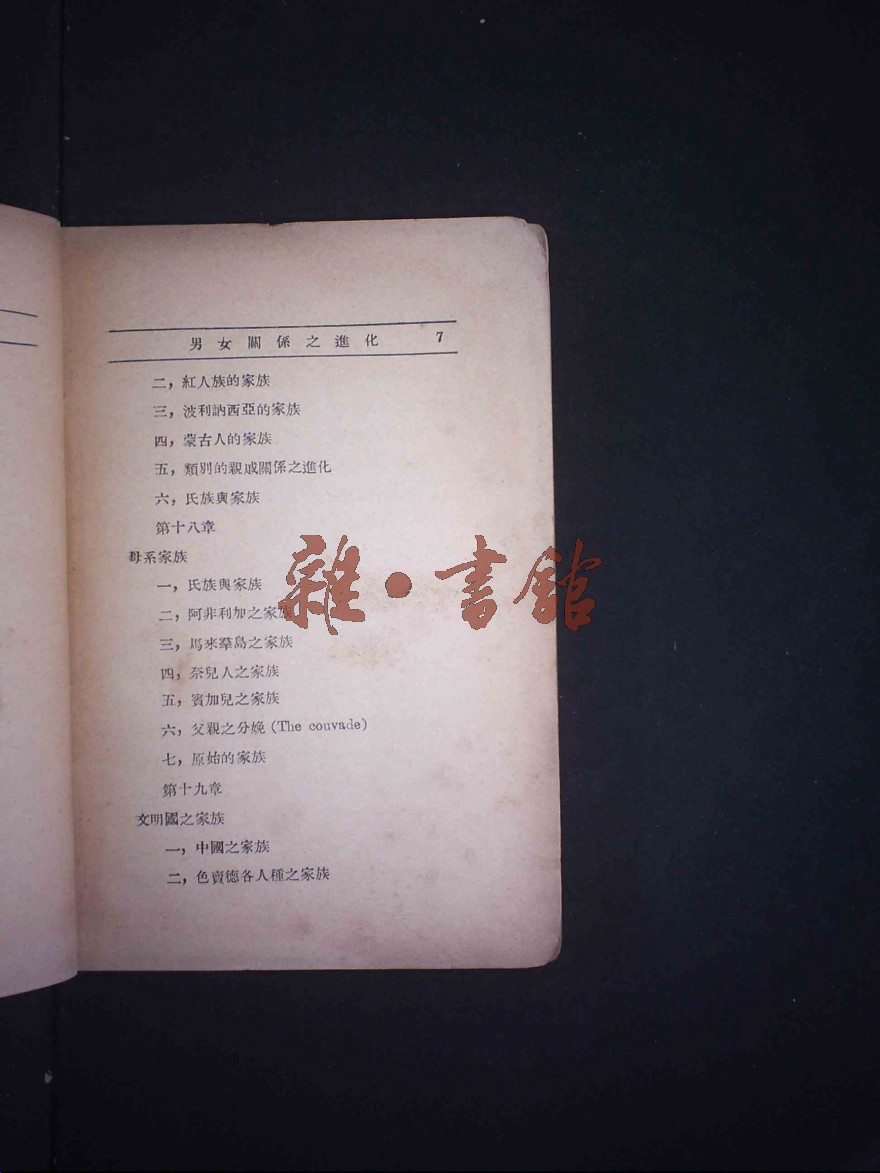 男女關係之進化 7
二，紅人族的家族
三，波利訥西亞的家族
四，蒙古人的家族
五，類別的親戚關係之進化
六，氏族與家族
第十八章
母系家族
一，氏族與家族
二，阿非利加之家族
三，馬來羣島之家族
四，奈兒人之家族
五，賓加兒之家族
六，父親之分娩 (The couvade)
七，原始的家族
第十九章
文明國之家族
一，中國之家族
二，色賣德各人種之家族
雜·書館